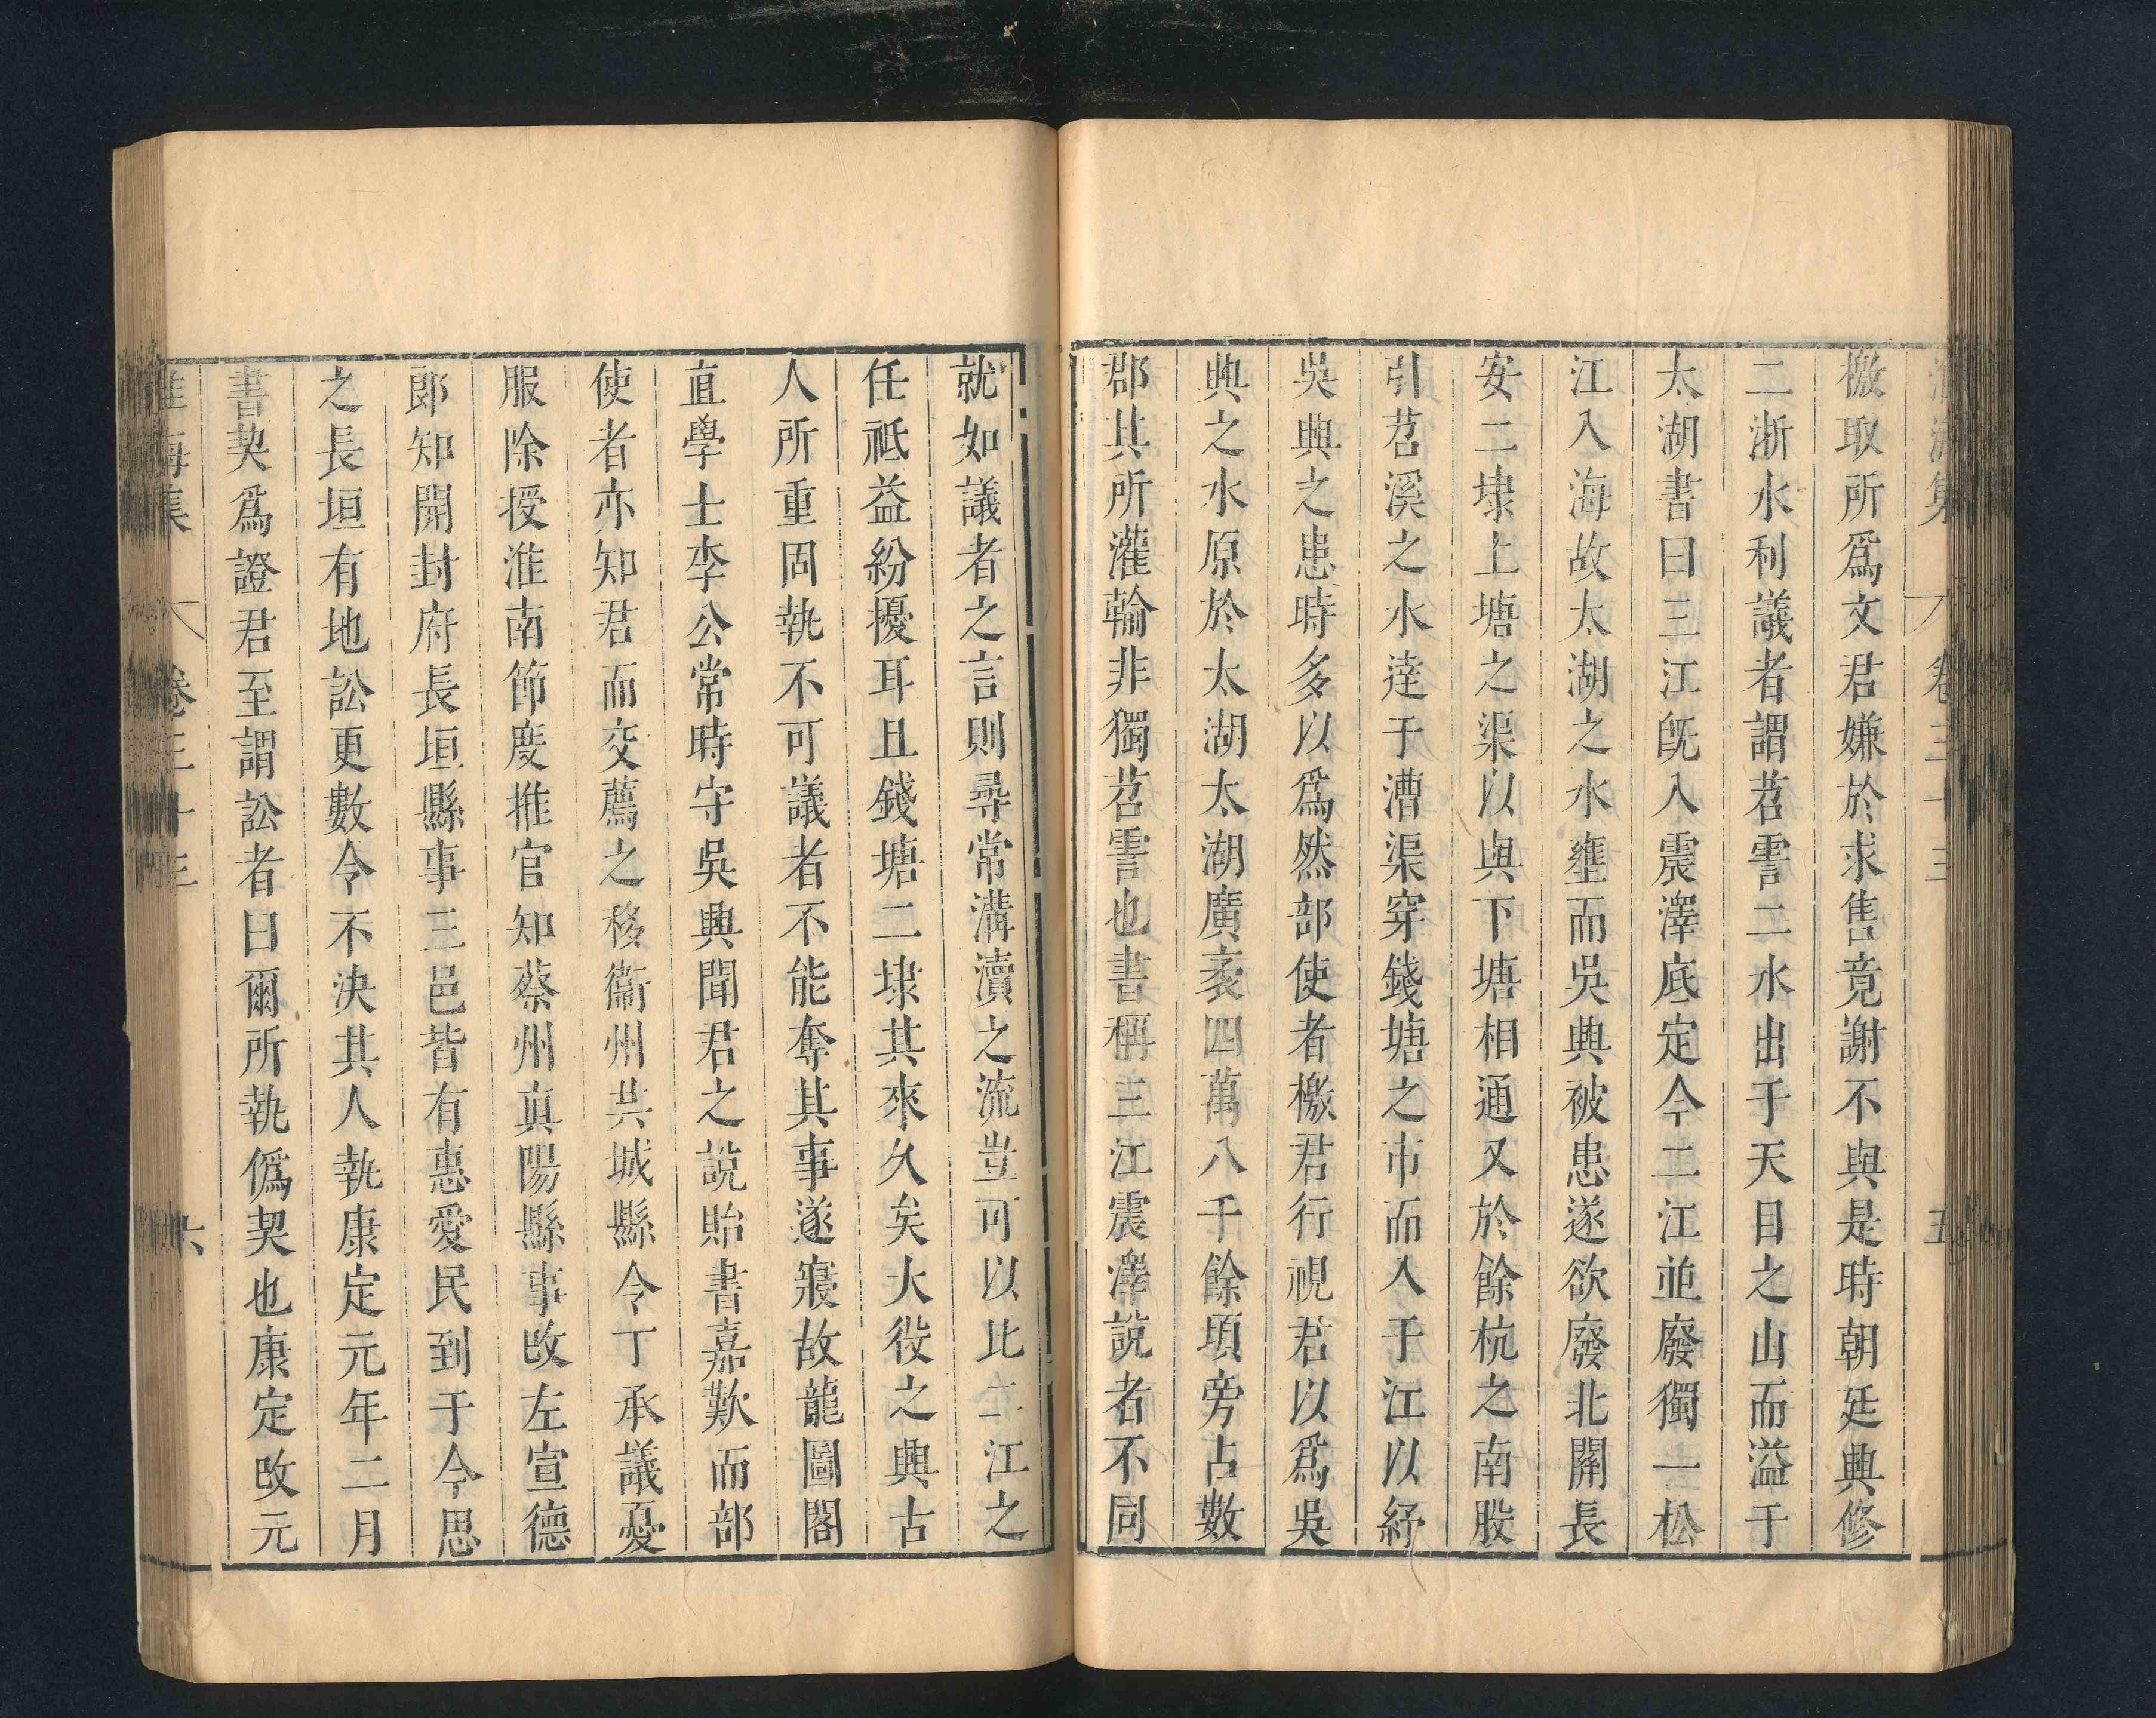 淮海集 卷三十三 五
檄取所爲文君嫌於求售竟謝不與是時朝廷興修
二浙水利議者謂苕霅二水出于天目之山而溢于
太湖書曰三江旣入震澤底定今二江並廢獨一松
江入海故太湖之水壅而吳興被患遂欲廢北關長
安二埭上塘之渠以與下塘相通又於餘杭之南股
引苕溪之水逹于漕渠穿錢塘之市而入于江以紓
吳興之患時多以爲然部使者檄君行視君以爲吳
興之水原於太湖太湖廣袤四萬八千餘頃旁占數
郡其所灌輸非獨苕霅也書稱三江震澤說者不同
就如議者之言則尋常溝瀆之流豈可以比二江之
任祗益紛擾耳且錢塘二埭其來久矣大役之興古
人所重固執不可議者不能奪其事遂寢故龍圖閣
直學士李公常時守吳興聞君之說貽書嘉歎而部
使者亦知君而交薦之移衞州共城縣令丁承議憂
服除授淮南節度推官知蔡州眞陽縣事改左宣德
郎知開封府長垣縣事三邑皆有惠愛民到于今思
之長垣有地訟更數令不決其人執康定元年二月
書契爲證君至謂訟者曰爾所執僞契也康定改元
淮海集 卷三十三 六